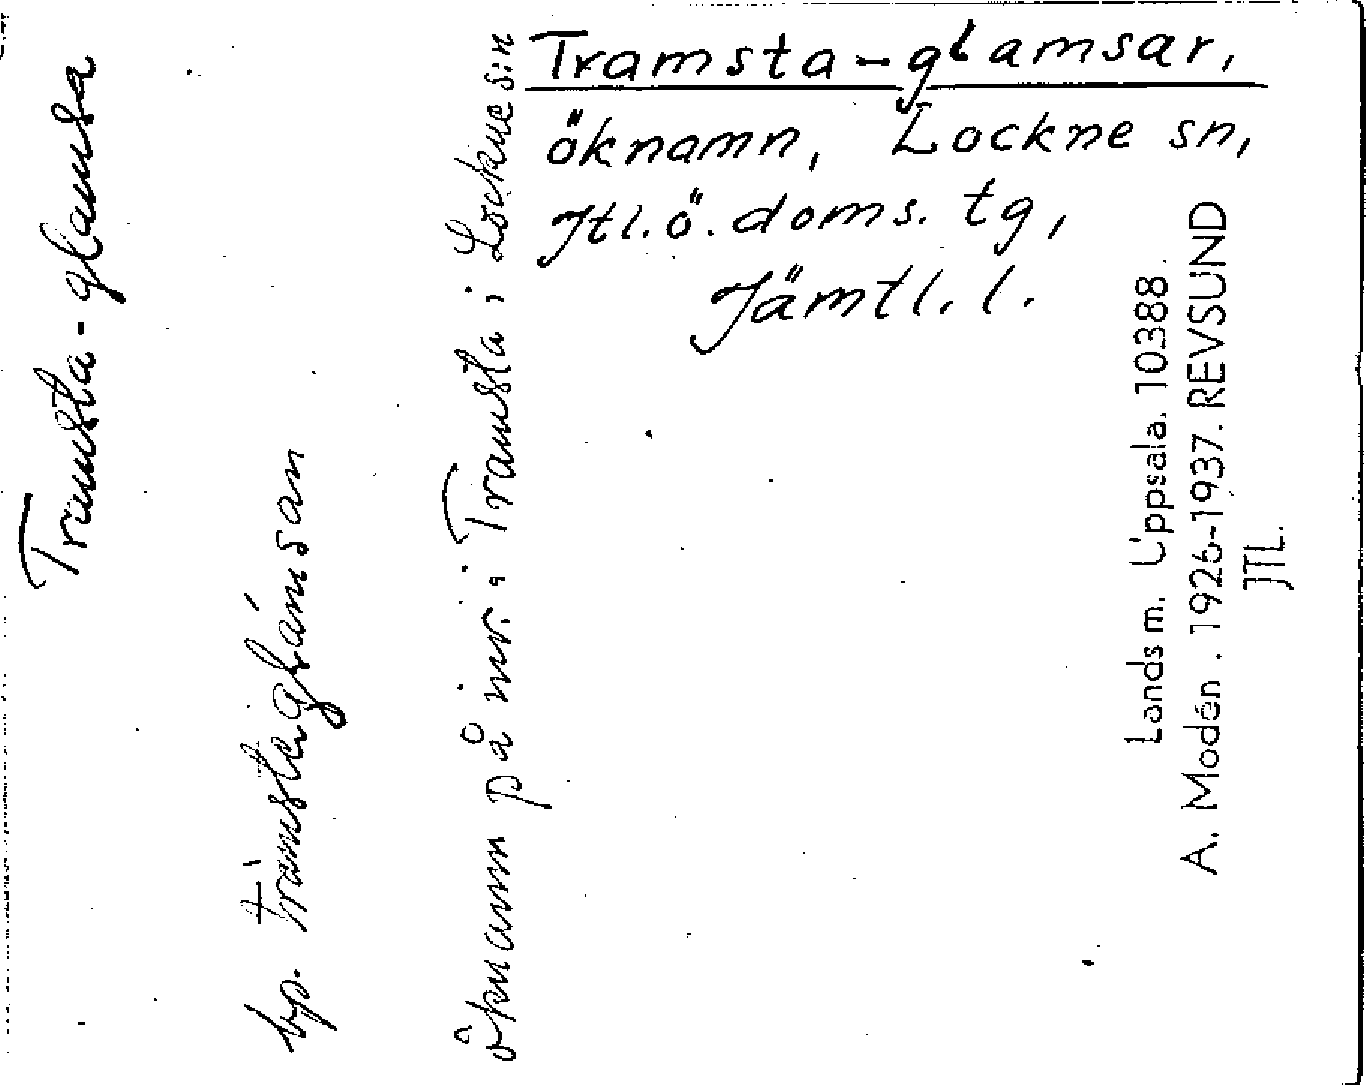 Tramsta-glamsar,
öknamn, Lockne sn,
Jtl.ö.doms. tg,
Jämtl. l.
Tramsta-glamsa
bp. tràmstaglámsan
öknamn på inv. i Tramsta i Lockne s:n
Landsm. Uppsala. 10388.
A. Modén. 1926-1937. REVSUND
JTL.